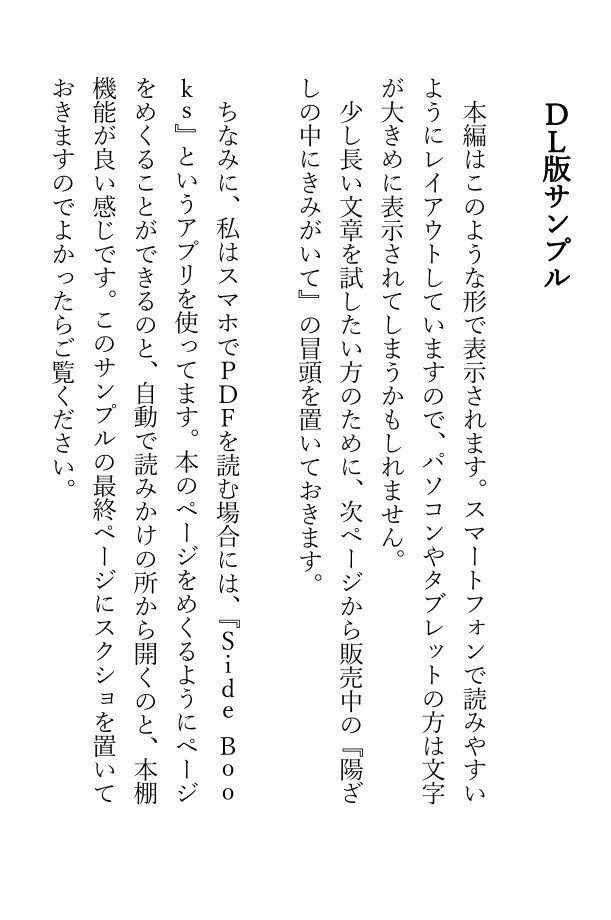 DL版サンプル
本編はこのような形で表示されます。スマートフォンで読みやすい
ようにレイアウトしていますので、パソコンやタブレットの方は文字
が大きめに表示されてしまうかもしれません。
少し長い文章を試したい方のために、次ページから販売中の『陽ざ
しの中にきみがいて』の冒頭を置いておきます。
ちなみに、私はスマホでPDFを読む場合には、『Side Boo
ks』というアプリを使ってます。本のページをめくるようにページ
をめくることができるのと、自動で読みかけの所から開くのと、本棚
機能が良い感じです。このサンプルの最終ページにスクショを置いて
おきますのでよかったらご覧ください。